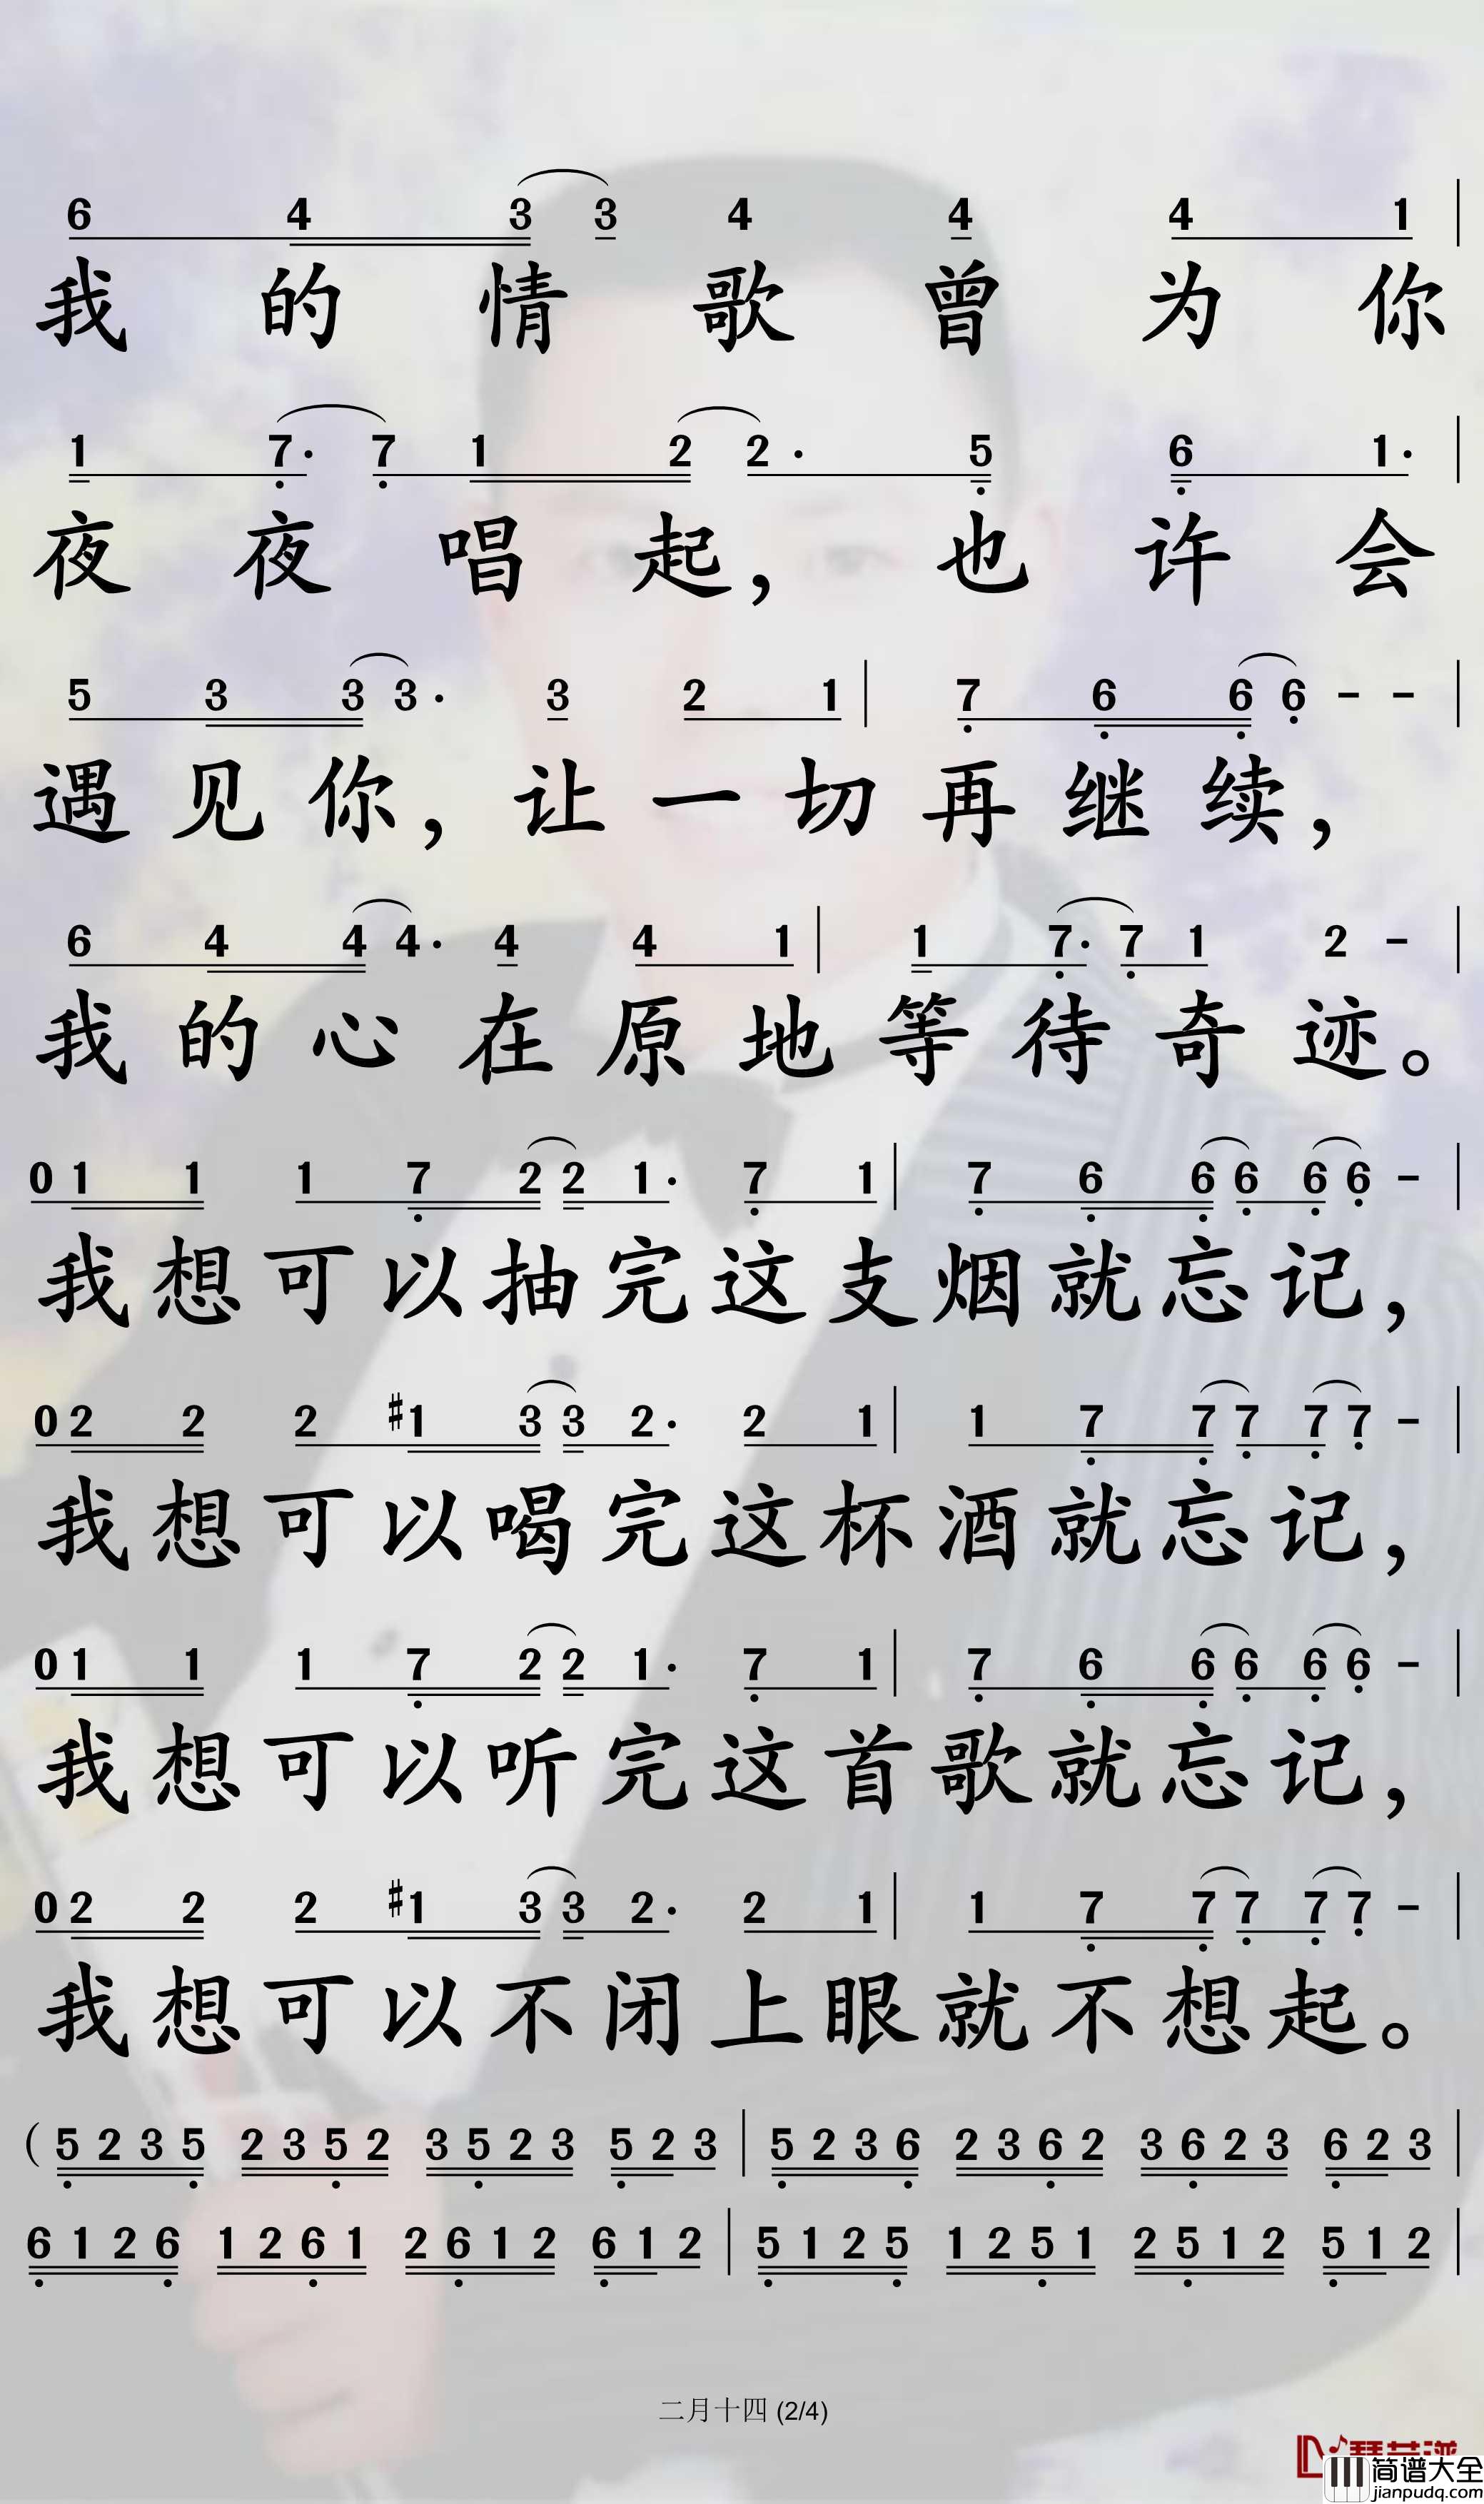 6 4 3 3 4 4 4 1
我的情歌曾为你
1 7· 7 1 2 2· 5 6 1·
夜夜唱起，也许会
5 3 3 3· 3 2 1 | 7 6 6 6 - -
遇见你，让一切再继续，
6 4 4 4· 4 4 1 | 1 7· 7 1 2 -
我的心在原地等待奇迹。
0 1 1 1 7 2 2 1· 7 1 | 7 6 6 6 6 6 -
我想可以抽完这支烟就忘记，
0 2 2 2 #1 3 3 2· 2 1 | 1 7 7 7 7 7 -
我想可以喝完这杯酒就忘记，
0 1 1 1 7 2 2 1· 7 1 | 7 6 6 6 6 6 -
我想可以听完这首歌就忘记，
0 2 2 2 #1 3 3 2· 2 1 | 1 7 7 7 7 7 -
我想可以不闭上眼就不想起。
(5 2 3 5 2 3 5 2 3 5 2 3 5 2 3 | 5 2 3 6 2 3 6 2 3 6 2 3 6 2 3
6 1 2 6 1 2 6 1 2 6 1 2 6 1 2 | 5 1 2 5 1 2 5 1 2 5 1 2 5 1 2
二月十四 (2/4)
简谱大全
jianpudq.com